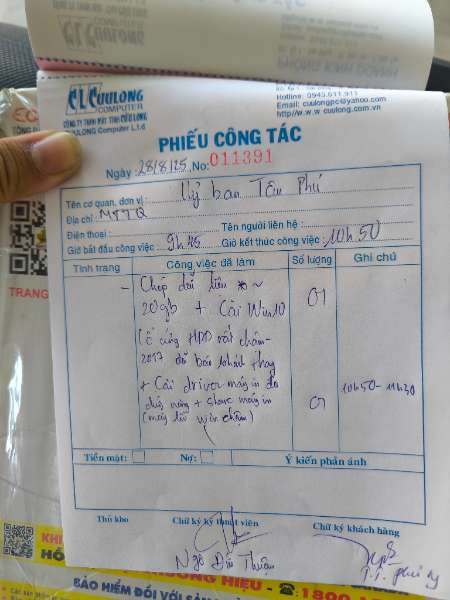 CUULONG
COMPUTER
CÔNG TY TNHH MÁY TÍNH CỬU LONG
CUULONG Computer L.t.d
Hotline: 0943.611.911
Email: cuulongpc@yahoo.com
http://w.w cuulong.com.vn
PHIẾU CÔNG TÁC
Ngày: 28/8/25 No: 011391
Tên cơ quan, đơn vị: Uỷ ban Tân Phú
Địa chỉ: MTTQ
Điện thoại: Tên người liên hệ:
Giờ bắt đầu công việc: 9h45 Giờ kết thúc công việc: 10h50
Tình trạng Công việc đã làm Số lượng Ghi chú
- Chép dữ liệu
20gb + Cài Win10 01
Ổ cứng HDD rất chậm
2017 đã báo khách thay
+ Cài driver máy in đa 10h50-11h30
chức năng + share máy in 01
(máy tính viện chậm)
Tiền mặt: Nợ: Ý kiến phản ánh
Thủ kho Chữ ký kỹ thuật viên Chữ ký khách hàng
TRANG
BẢO HIỂM ĐỐI VỚI
HIỆU - 1800